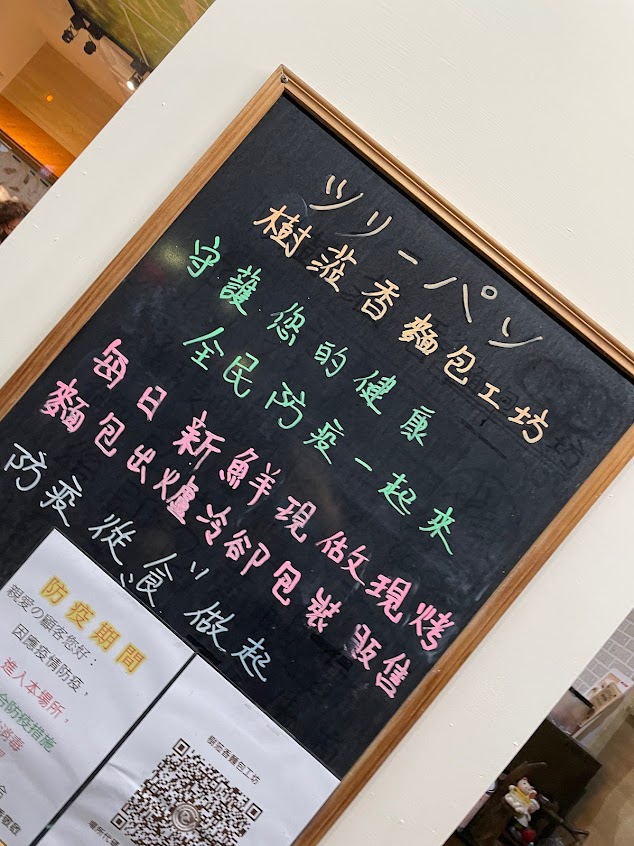 ツリーパン
樹菈香麵包工坊
守護您的健康
全民防疫一起來
每日新鮮現做現烤
麵包出爐冷卻包裝販售
防疫從"食"做起
防疫期間
親愛の顧客您好：
因應疫情防疫，
進入本場所，
合防疫措施
消毒
樹菈香麵包工坊
場所代碼